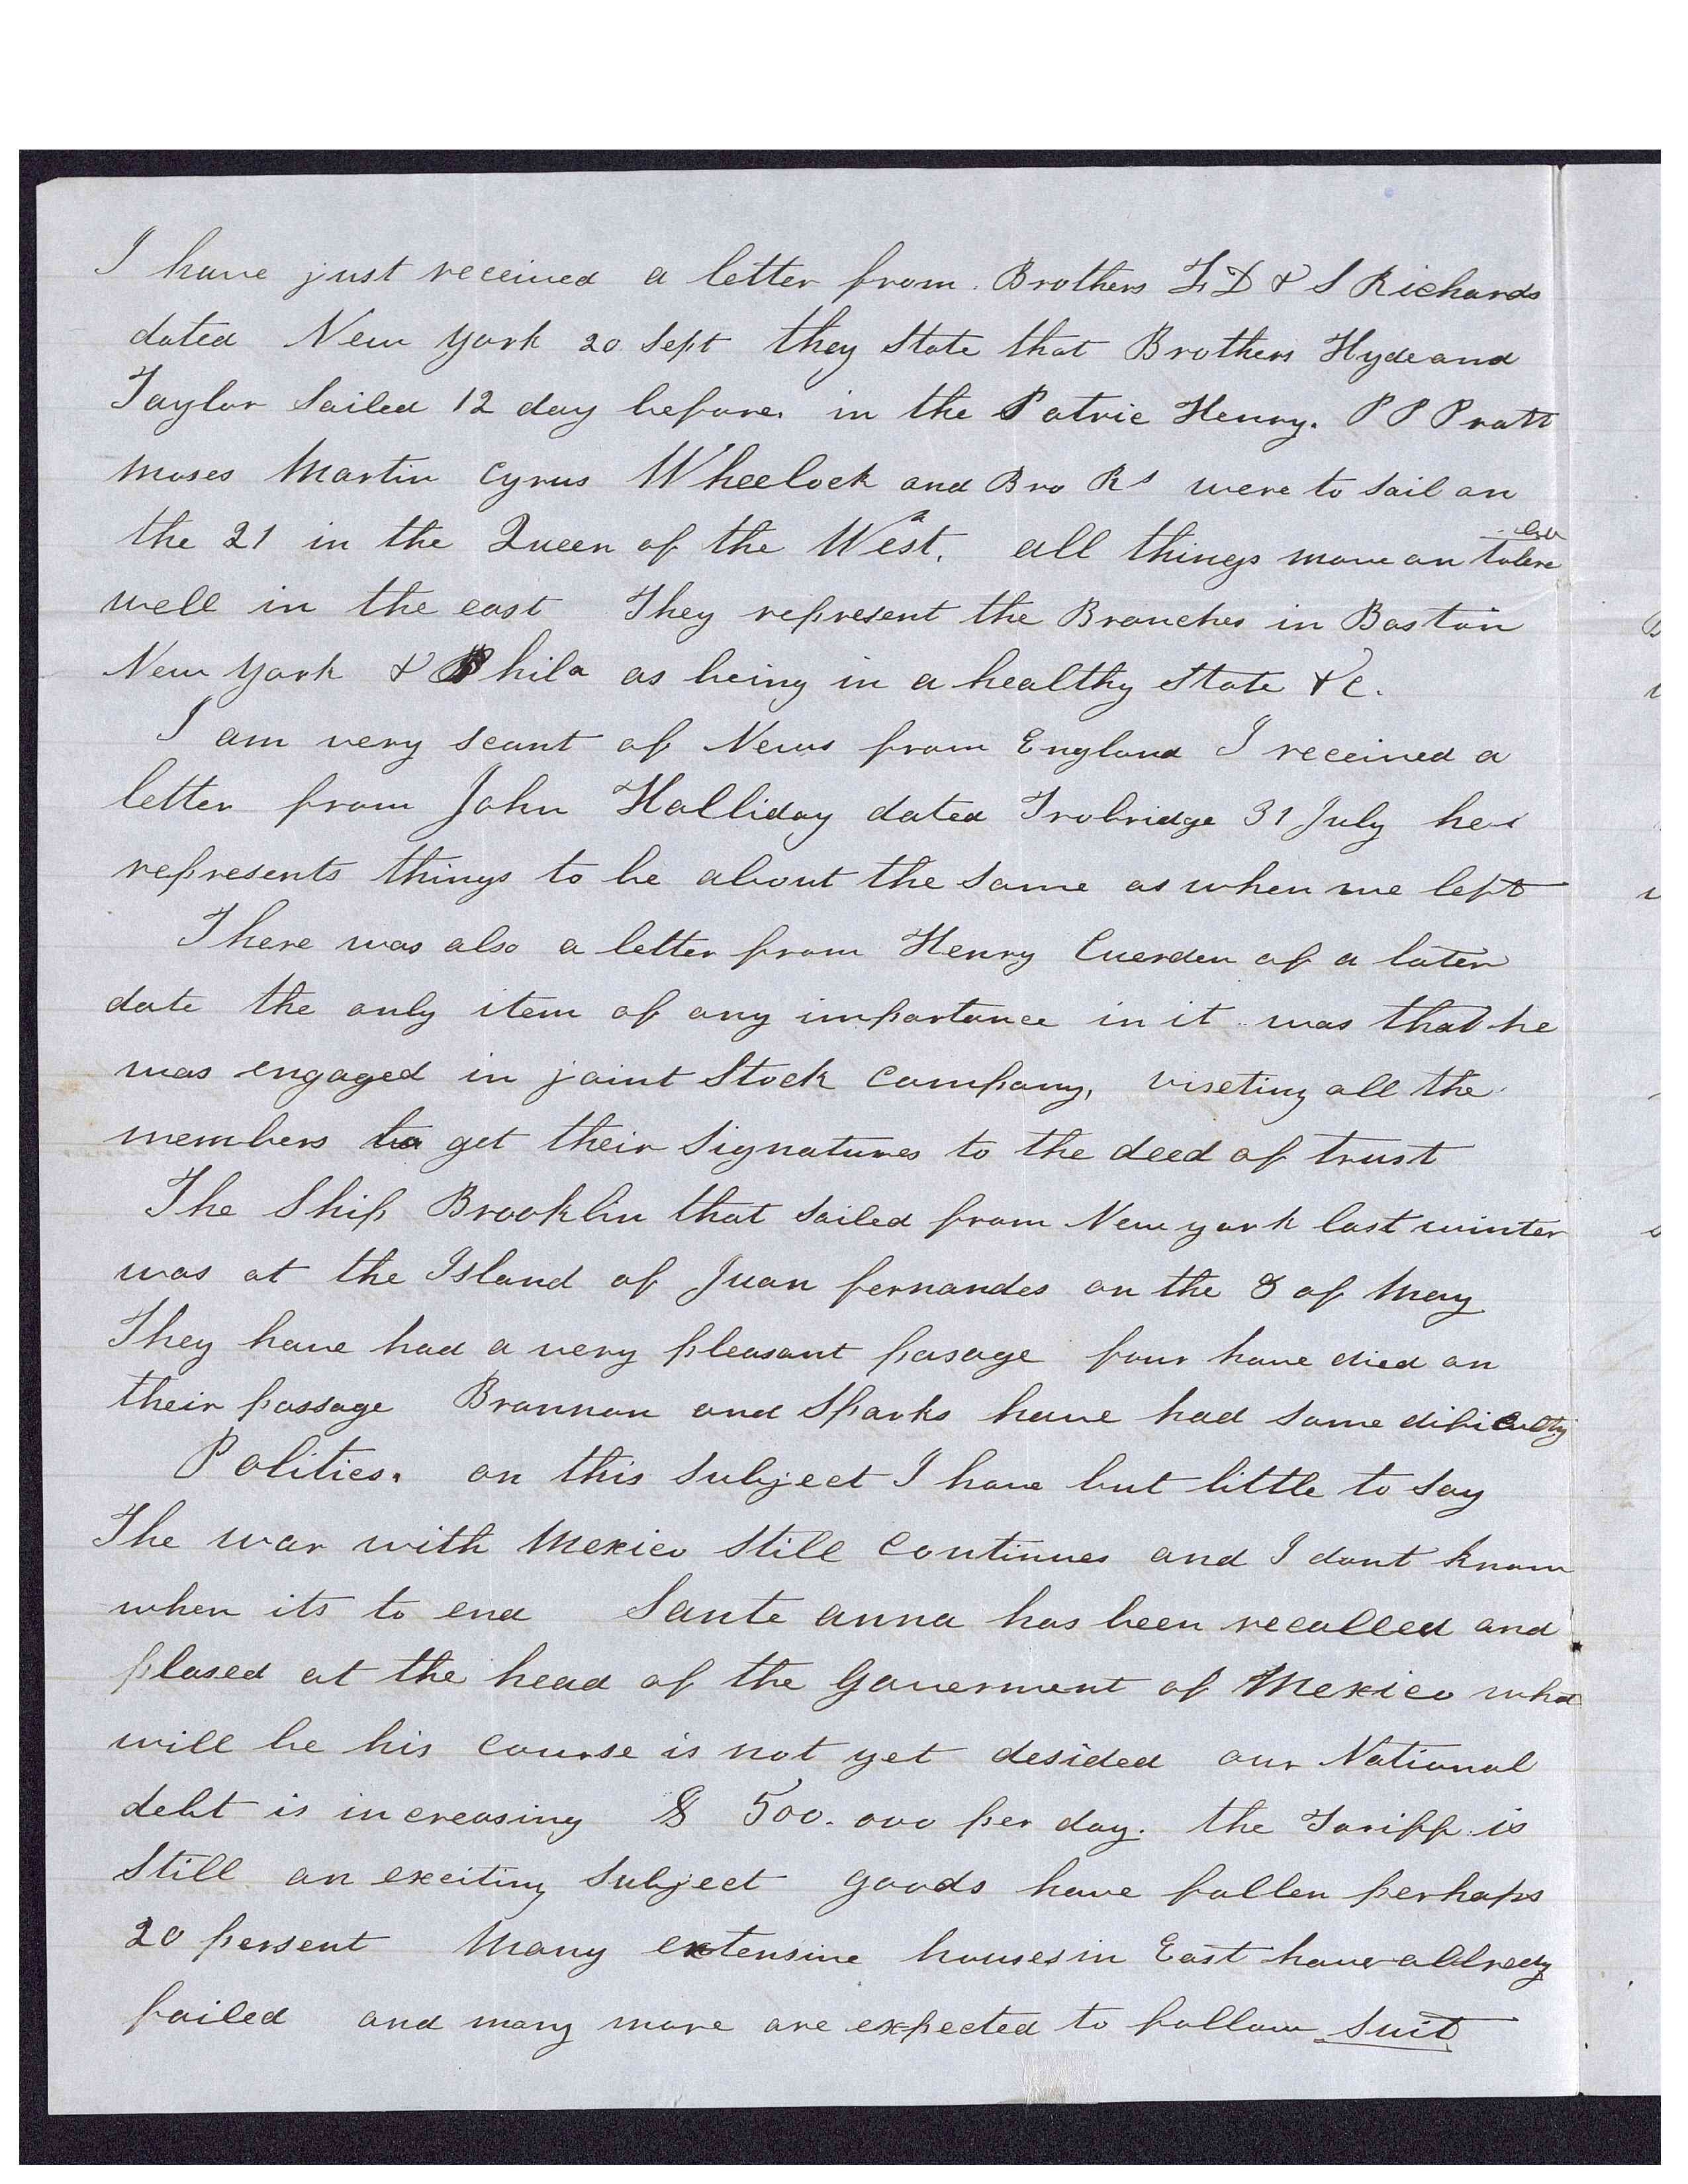 I have just received a letter from Brothers F D & S Richards
dated New York 20 Sept they state that Brothers Hyde and
Taylor Sailed 12 day before. in the Patric Henry. P P Pratt
Moses Martin Cyrus Wheelock and Bro Rs were to sail on
the 21 in the Queen of the West. all things move on tolera
well in the east They represent the Branches in Boston
New York & Phila as being in a healthy state &c.
I am very scant of News from England I received a
letter from John Halliday dated Trobridge 31 July he
represents things to be about the same as when we left
There was also a letter from Henry Cuerden of a later
date the only item of any importance in it was that he
was engaged in joint Stock Company, viseting all the
members to get their Signatures to the deed of trust
The Ship Brooklin that sailed from New york last winter
was at the Island of Juan fernandes on the 8 of May
They have had a very pleasant pasage four have died on
their passage Brannan and Sparks have had some dificulty
Politics. on this subject I have but little to say
The war with Mexico still continues and I dont know
when its to end Sante anna has been recalled and
plased at the head of the Goverment of Mexico what
will be his course is not yet desided our National
debt is increasing $ 500.000 per day. the Tariff is
still an exciting subject goods have fallen perhaps
20 persent Many extensive houses in East have allready
failed and many more are expected to follow suit